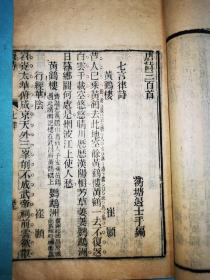 唐詩三百首
蘅塘退士手編
七言律詩
黃鶴樓 崔顥
昔人已乘黃鶴去此地空餘黃鶴樓黃鶴一去不復返
白雲千載空悠悠晴川歷歷漢陽樹芳草萋萋鸚鵡洲
日暮鄉關何處是烟波江上使人愁
黃鶴樓
鸚鵡洲
行經華陰 崔顥
太華俯咸京天外三峯削不成武帝祠前雲欲散